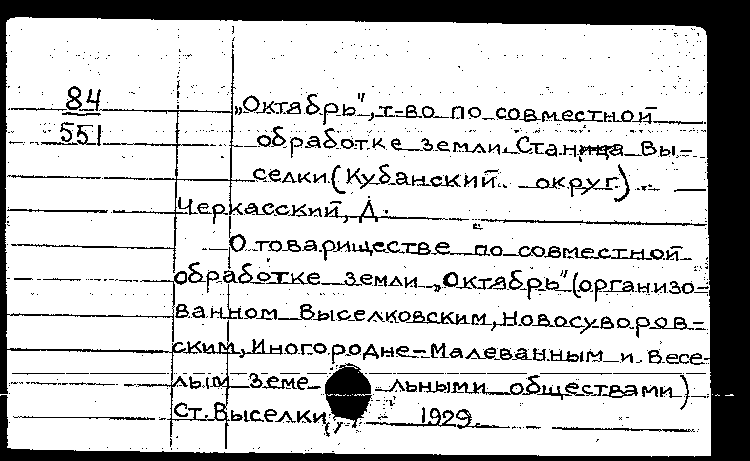 84
551
„Октябрь", т-во по совместной
обработке земли. Станица Вы-
селки (Кубанский округ).
Черкасский, Д.
О товариществе по совместной
обработке земли „Октябрь" (организо-
ванном Выселковским, Новосуворов-
ским, Иногородне-Малеванным и Весе-
лым земе льными обществами)
Ст. Выселки, 1929.